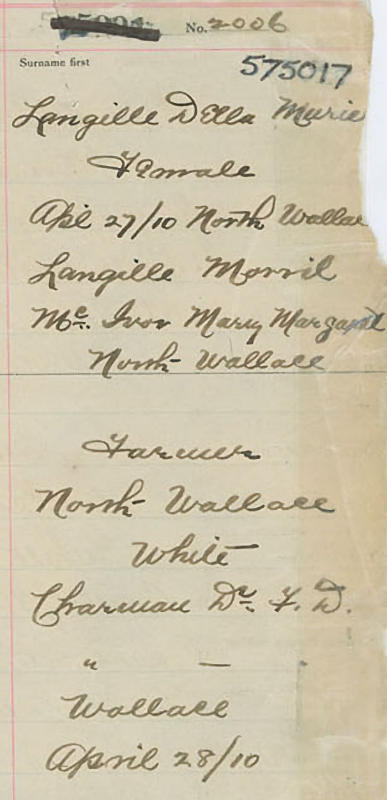 No. 2006
Surname first
575017
Langille Della Marie
Female
Apl 27/10 North Wallace
Langille Morril
Mc. Ivor Mary Margaret
North Wallace
Farmer
North Wallace
White
Charman Dr. F. D.
" —
Wallace
April 28/10